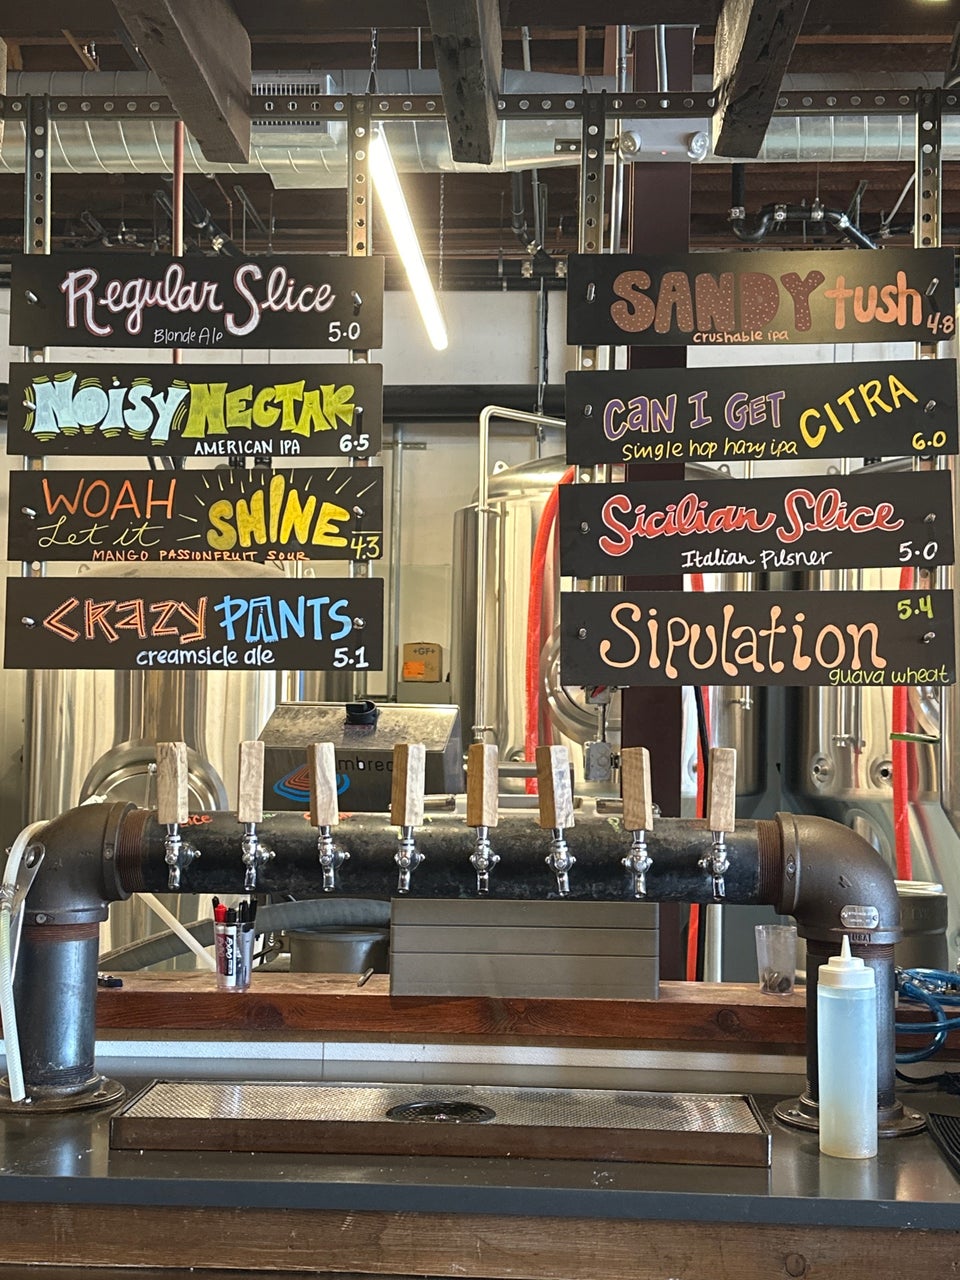 Regular Slice
Blonde Ale 5.0
NOISY NECTAR
AMERICAN IPA 6.5
WOAH
Let it SHINE
MANGO PASSIONFRUIT SOUR 4.3
CRAZY PANTS
creamsicle ale 5.1
SANDY tush
crushable ipa 4.8
CAN I GET CITRA
single hop hazy ipa 6.0
Sicilian Slice
Italian Pilsner 5.0
Sipulation 5.4
guava wheat
+GF+
mbrec
USA